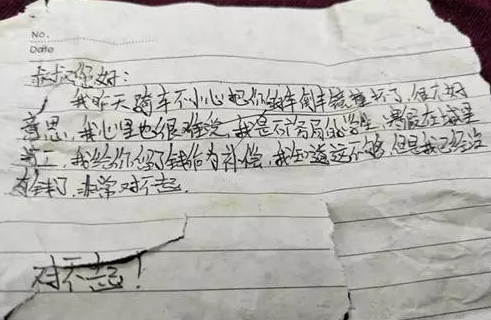 No.
Date
叔叔您好:
我昨天骑车不小心把你的车倒车镜撞坏了,很不好
意思,我心里也很难受,我是不 局的学生,暑假在城里
打工,我给你留了钱作为补偿,我知道这不够,但是我已经没
有钱了,非常对不起。
对不起!